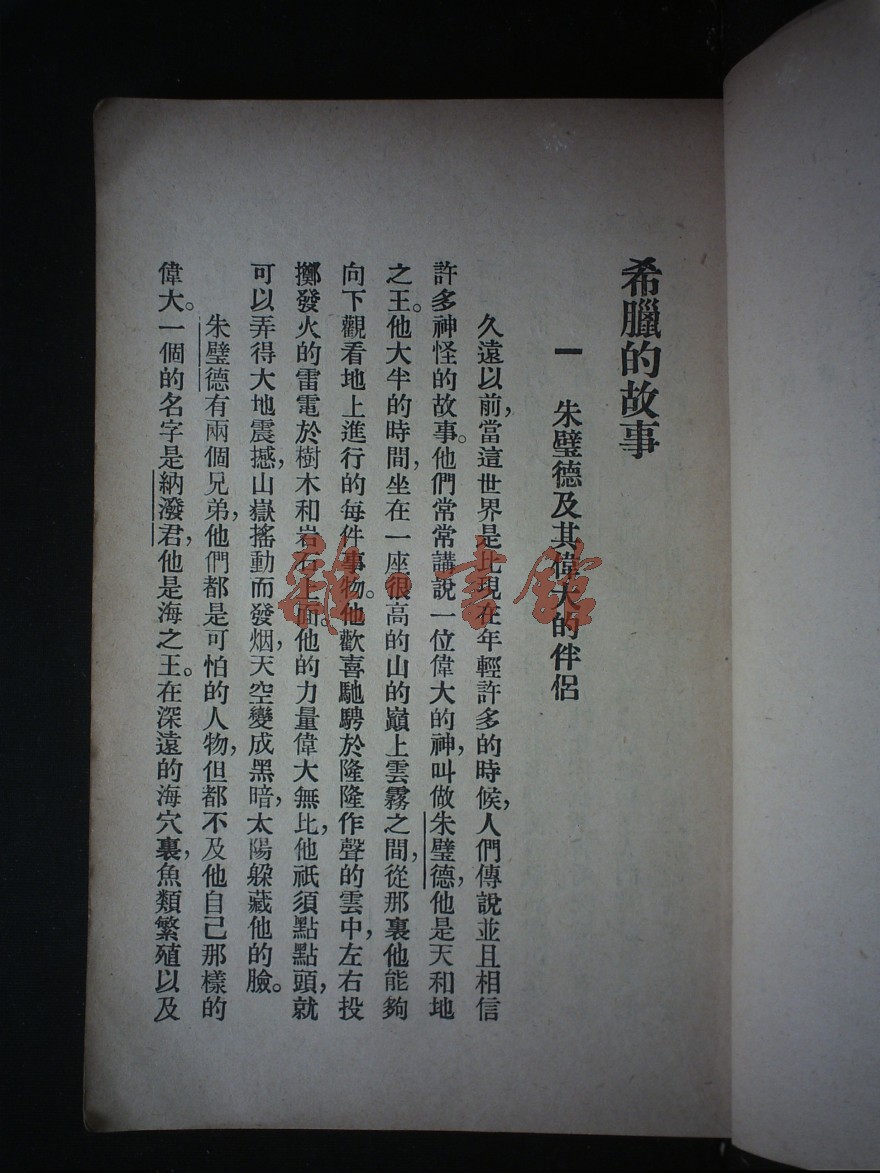 希臘的故事
一　朱璧德及其偉大的伴侶
久遠以前，當這世界是比現在年輕許多的時候，人們傳說並且相信
許多神怪的故事。他們常常講說一位偉大的神，叫做朱璧德，他是天和地
之王。他大半的時間，坐在一座很高的山的巔上雲霧之間，從那裏他能夠
向下觀看地上進行的每件事物。他歡喜馳騁於隆隆作聲的雲中，左右投
擲發火的雷電於樹木和岩石上面。他的力量偉大無比，他祇須點點頭，就
可以弄得大地震撼，山嶽搖動而發烟，天空變成黑暗，太陽躲藏他的臉。
朱璧德有兩個兄弟，他們都是可怕的人物，但都不及他自己那樣的
偉大。一個的名字是納潑君，他是海之王。在深遠的海穴裏，魚類繁殖以及
雜·書館